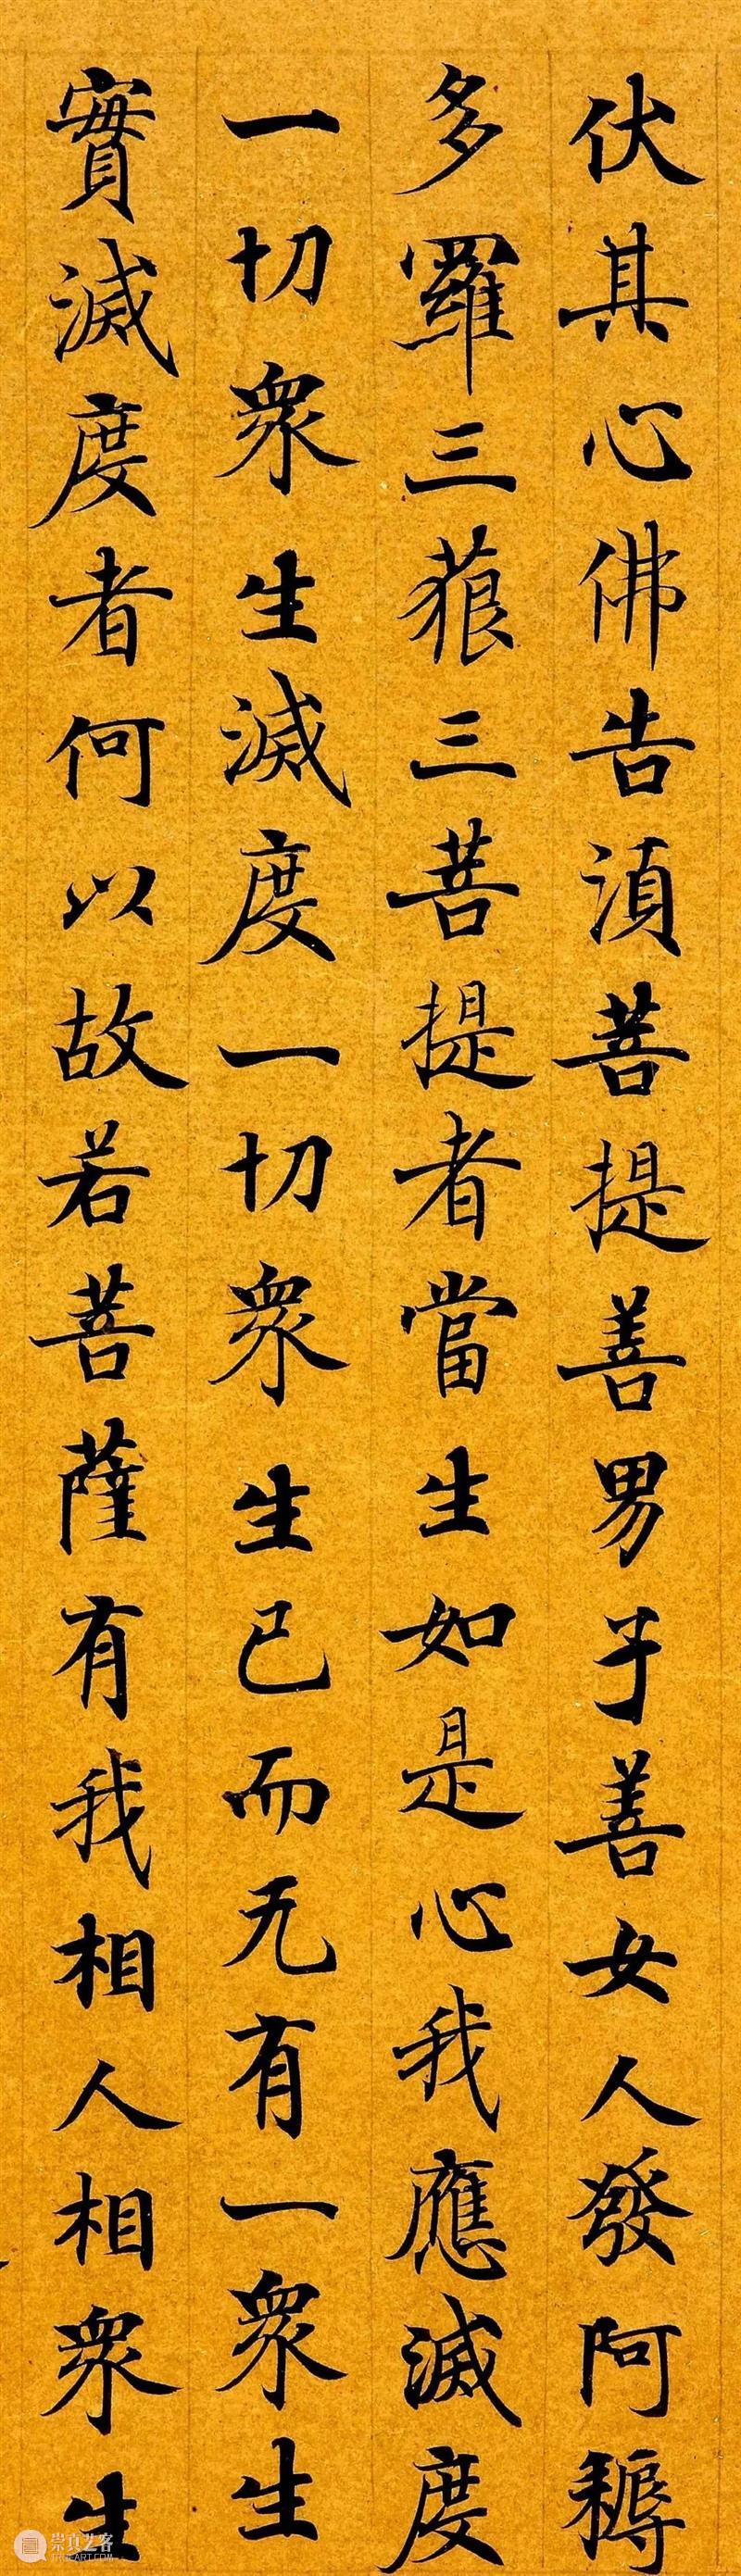 伏其心佛告湏菩提善男子善女人發阿耨
多羅三藐三菩提者當生如是心我應滅度
一切衆生滅度一切衆生已而无有一衆生
實滅度者何以故若菩薩有我相人相衆生
崇真艺客